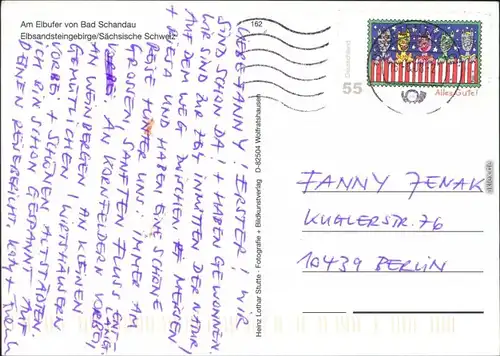 Am Elbufer von Bad Schandau
Elbsandsteingebirge/Sächsische Schweiz
162
LIEBE FANNY! ERSTER! WIR
SIND SCHON DA! + HABEN GEWONNEN.
WIR SIND ZUR ZEIT INMITTEN DER NATUR!
AUF DEM WEG ZWISCHEN MEISSEN
+ RIESA UND HABEN EINE SCHÖNE
REISE HINTER UNS: IMMER AM
GROßEN, SANFTEN FLUSS ENT-
LANG. AN KORNFELDERN VORBEI,
AN WEINBERGEN, AN KLEINEN
GEMÜTLICHEN WIRTSHÄUSERN
VORBEI + SCHÖNEN ALTSTÄDTEN.
ICH BIN SCHON GESPANNT AUF
DEINEN REISEBERICHT,
Heinz Lothar Stutte · Fotografie + Bildkunstverlag D-82504 Wolfratshausen
Deutschland
55
Alles Gute!
FANNY JENAK
KUGLERSTR. 76
10439 BERLIN